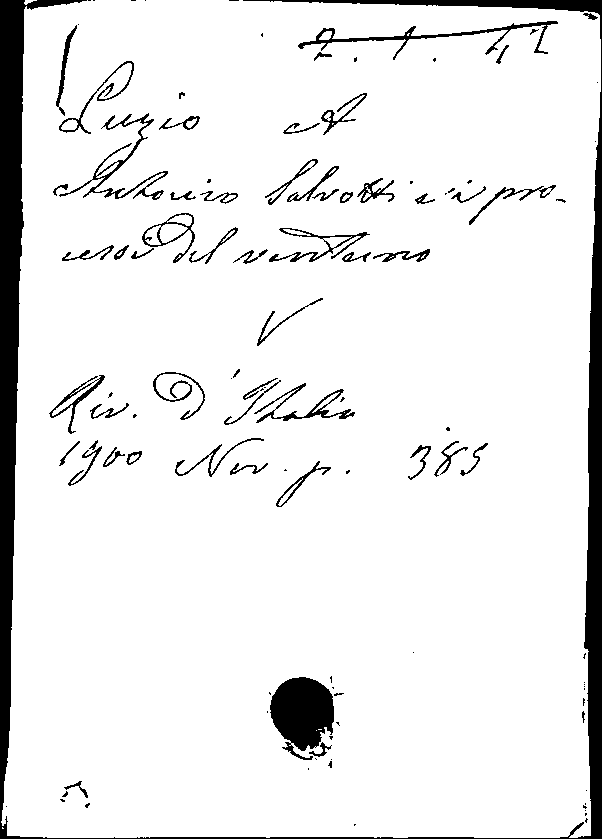 2. 1. 41
Luzio A
Antonio Salvotti e i pro-
cessi del ventuno
V
Riv. d'Italia
1900 Nov. p. 385